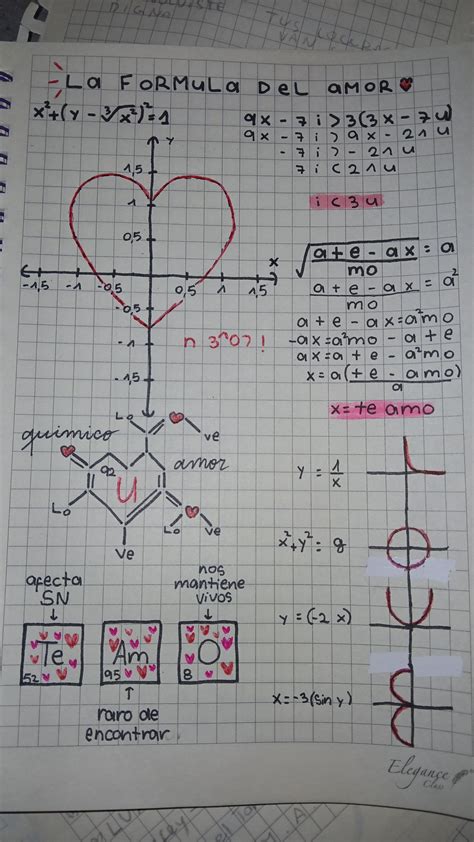 DIGNA
LA FORMULA DEL AMOR
x²+(y-∛x²)²=1
9x-7i>3(3x-7u)
9x-7i>9x-21u
-7i>-21u
7i<21u
i<3u
Y
1,5
1
0,5
x
-1,5 -1 -0,5 0,5 1 1,5
-0,5
-1
-1,5
n 3^07!
√((a+e-ax)/mo)=a
(a+e-ax)/mo=a²
a+e-ax=a²mo
-ax=a²mo-a+e
ax=a+e-a²mo
x=a(+e-amo)/a
x=te amo
químico
amor
Lo
ve
92
U
Lo
Ve
Lo
Ve
y=1/x
x²+y²=9
y=(-2x)
x=-3(sin y)
afecta
SN
nos
mantiene
vivos
Te
52
Am
95
O
8
raro de
encontrar
Elegance
Class